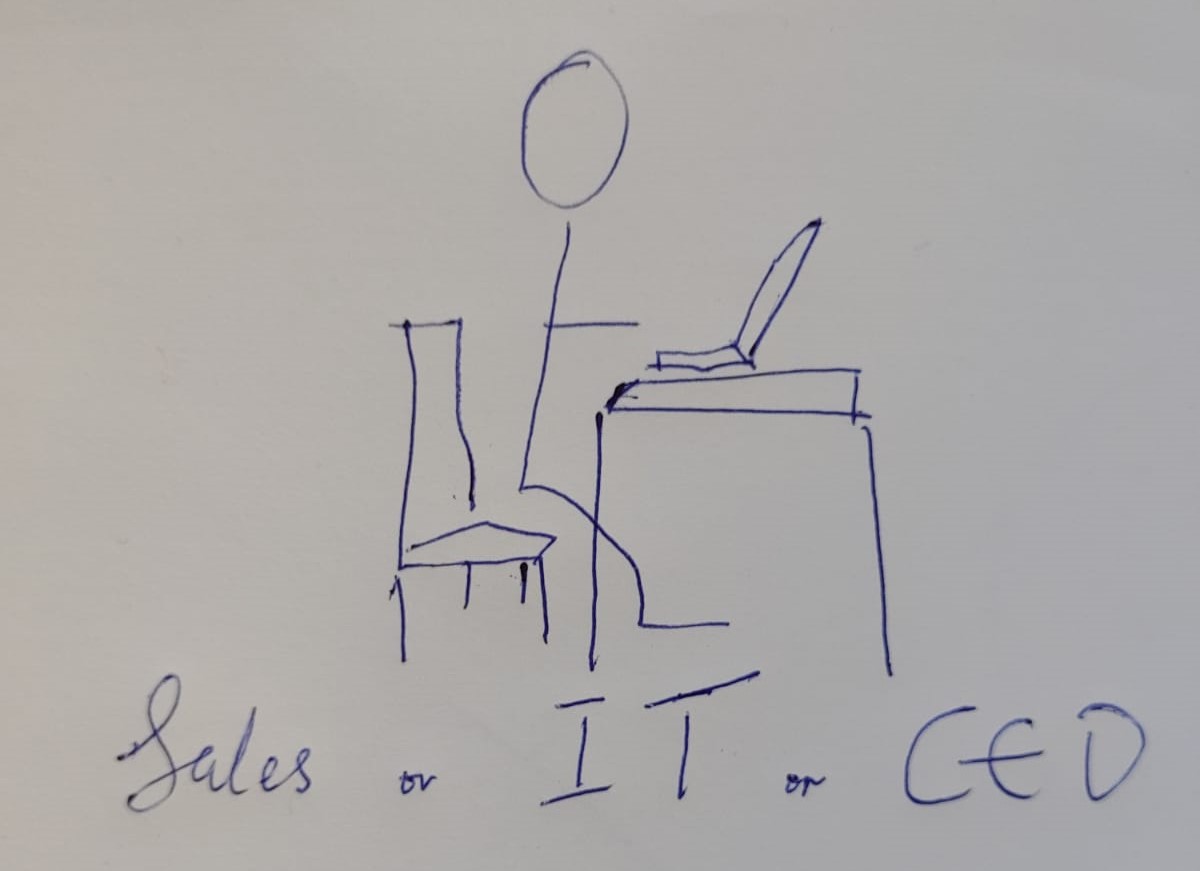 Sales or IT or CEO